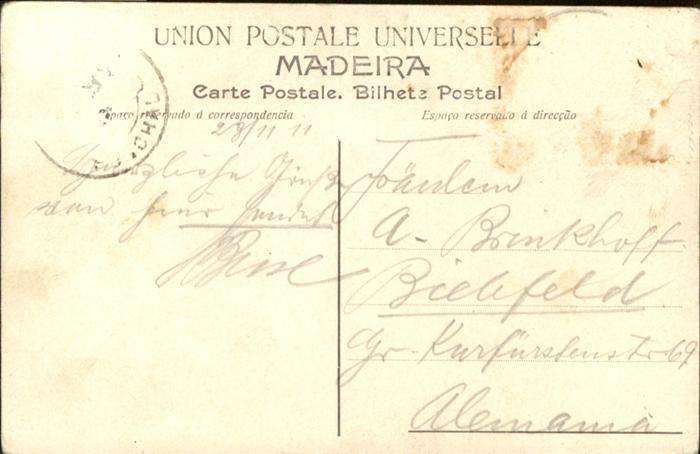 UNION POSTALE UNIVERSELLE
MADEIRA
Carte Postale. Bilhete Postal
Espaço reservado á correspondencia
Espaço reservado á direcção
28/11 11
Herzliche Grüße
von hier sendet
Fräulein
A. Brinkhoff
Bielefeld
Gr. Kurfürstenstr 69
Alemania